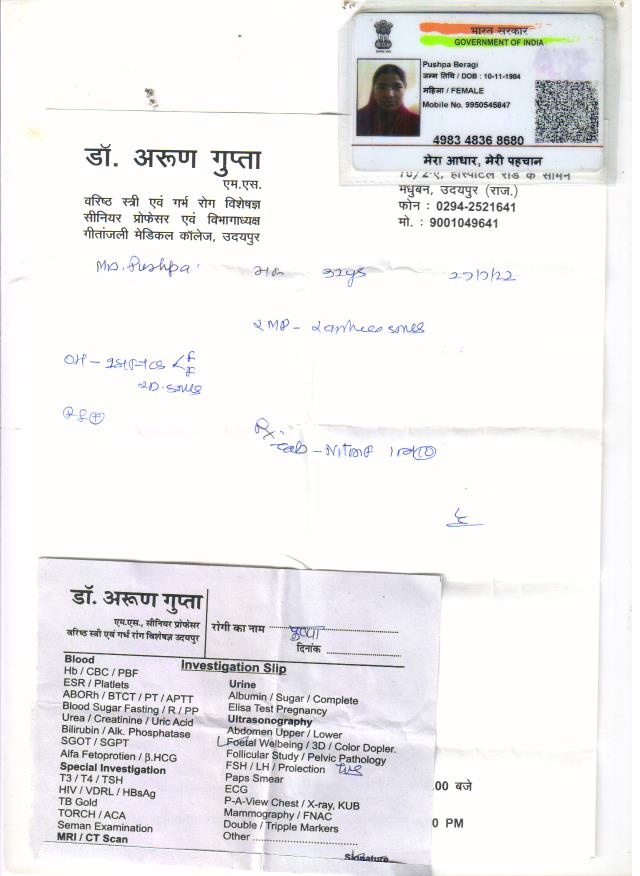 भारत सरकार
GOVERNMENT OF INDIA
Pushpa Beragi
जन्म तिथि / DOB : 10-11-1984
महिला / FEMALE
Mobile No. 9950545847
4983 4836 8680
मेरा आधार, मेरी पहचान
डॉ. अरूण गुप्ता
एम.एस.
वरिष्ठ स्त्री एवं गर्भ रोग विशेषज्ञ
सीनियर प्रोफेसर एवं विभागाध्यक्ष
गीतांजली मेडिकल कॉलेज, उदयपुर
10/2-ए, हॉस्पिटल रोड के सामने
मधुबन, उदयपुर (राज.)
फोन : 0294-2521641
मो. : 9001049641
Pushpa
32ys
OH -
Rx
डॉ. अरूण गुप्ता
एम.एस., सीनियर प्रोफेसर
वरिष्ठ स्त्री एवं गर्भ रोग विशेषज्ञ उदयपुर
रोगी का नाम पुष्पा
दिनांक
Investigation Slip
Blood
Hb / CBC / PBF
ESR / Platlets
ABORh / BTCT / PT / APTT
Blood Sugar Fasting / R / PP
Urea / Creatinine / Uric Acid
Bilirubin / Alk. Phosphatase
SGOT / SGPT
Alfa Fetoprotien / β.HCG
Special Investigation
T3 / T4 / TSH
HIV / VDRL / HBsAg
TB Gold
TORCH / ACA
Seman Examination
MRI / CT Scan
Urine
Albumin / Sugar / Complete
Elisa Test Pregnancy
Ultrasonography
Abdomen Upper / Lower
Foetal Welbeing / 3D / Color Dopler.
Follicular Study / Pelvic Pathology
FSH / LH / Prolection TVS
Paps Smear
ECG
P-A-View Chest / X-ray, KUB
Mammography / FNAC
Double / Tripple Markers
Other
Signature
.00 बजे
0 PM